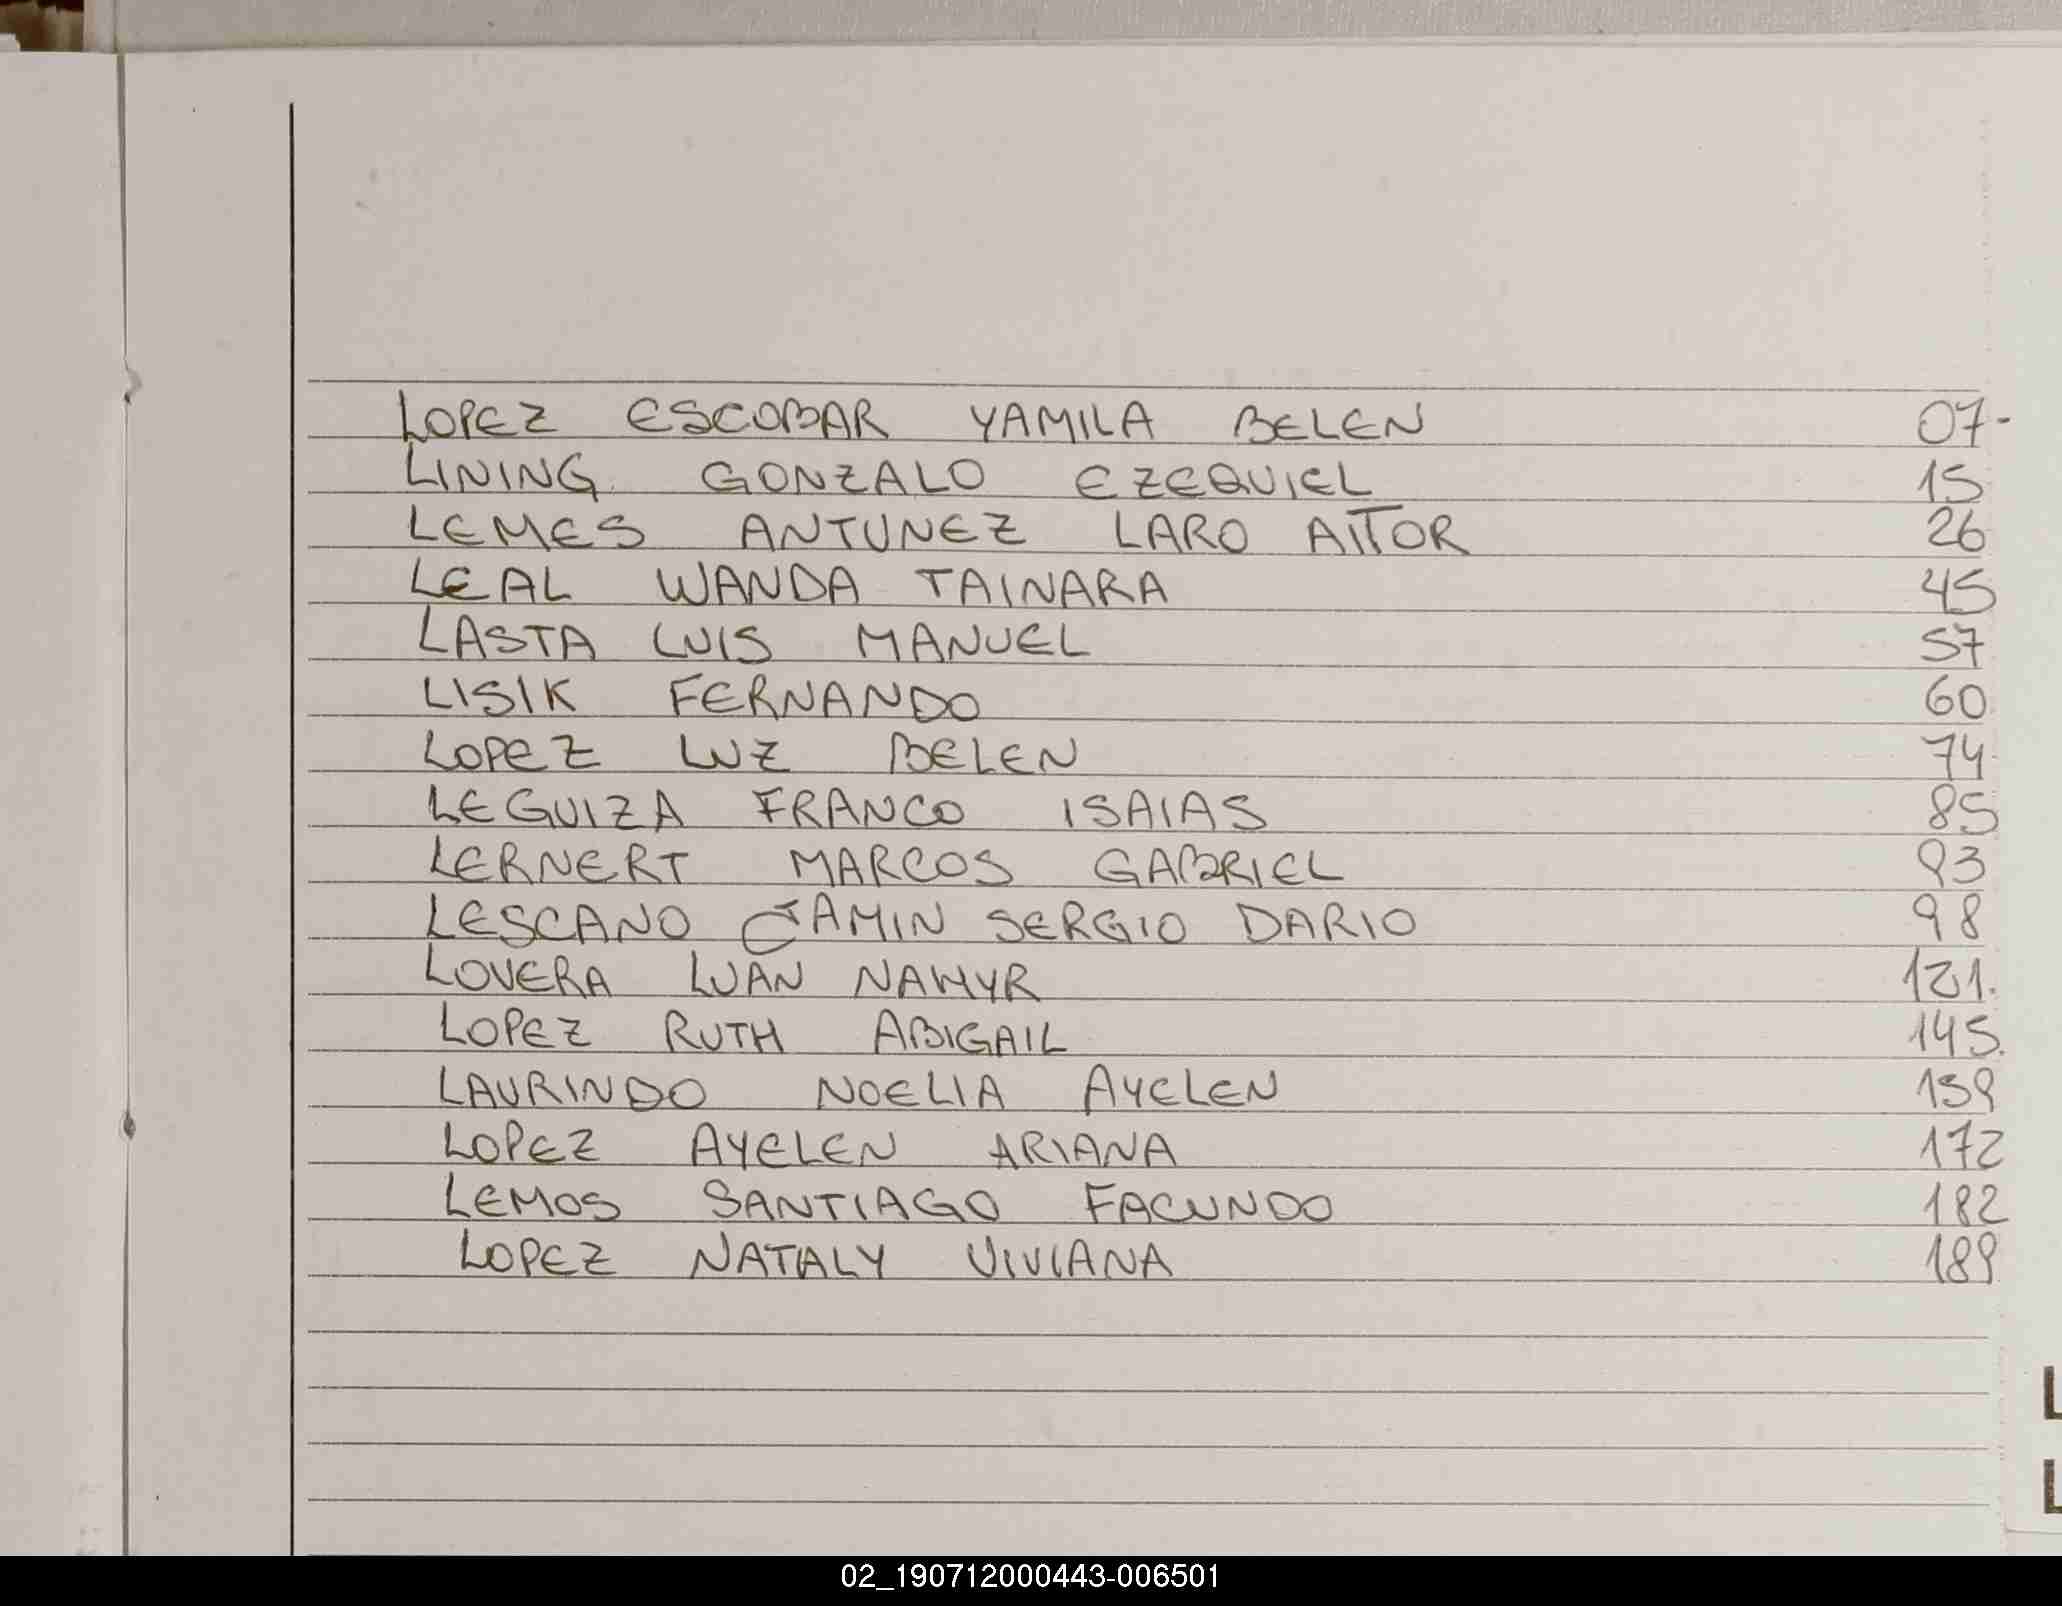 LOPEZ ESCOBAR YAMILA BELEN 07-
LINING GONZALO EZEQUIEL 15
LEMES ANTUNEZ LARO AITOR 26
LEAL WANDA TAINARA 45
LASTA LUIS MANUEL 57
LISIK FERNANDO 60
LOPEZ LUZ BELEN 74
LEGUIZA FRANCO ISAIAS 85
LERNERT MARCOS GABRIEL 93
LESCANO JAMIN SERGIO DARIO 98
LOVERA LUAN NAHYR 121.
LOPEZ RUTH ABIGAIL 145.
LAURINDO NOELIA AYELEN 159
LOPEZ AYELEN ARIANA 172
LEMOS SANTIAGO FACUNDO 182
LOPEZ NATALY VIVIANA 189
L
L
02_190712000443-006501